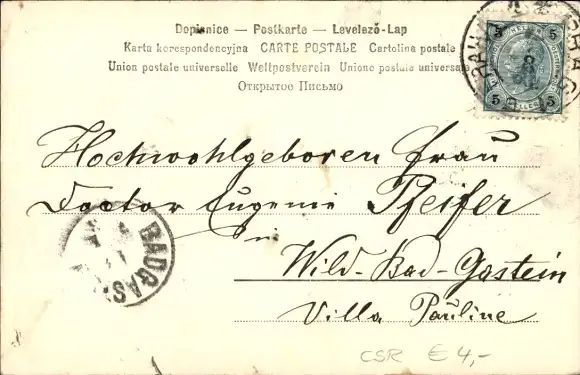 Dopisnice — Postkarte — Levelező-Lap
Karta korespondencyjna CARTE POSTALE Cartolina postale
Union postale universelle Weltpostverein Unione postale universale
Открытое Письмо
5 5
5 5
Hochwohlgeboren Frau
Doctor Eugenie Pfeifer
in
Wild-Bad-Gastein
Villa Pauline
BADGAS
CSR € 4,-